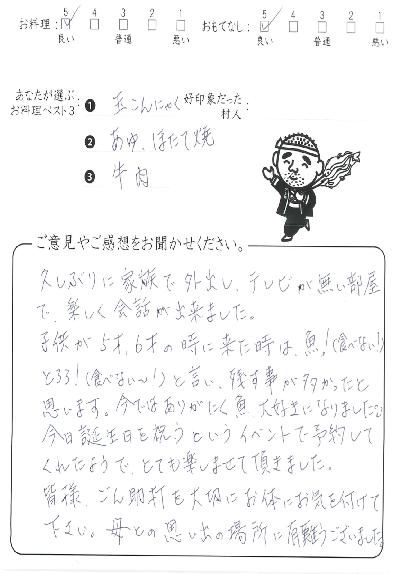 お料理: 5 4 3 2 1 おもてなし: 5 4 3 2 1
良い 普通 悪い 良い 普通 悪い
あなたが選ぶ お料理ベスト3: ❶ 玉こんにゃく 好印象だった村人:
❷ あゆ、ほたて焼
❸ 牛肉
ご意見やご感想をお聞かせください。
久しぶりに家族で外出し、テレビが無い部屋
で、楽しく会話が出来ました。
子供が5才、6才の時に来た時は、魚!(食べない!)
とろろ!(食べない〜!)と言い、残す事が多かったと
思います。今ではありがたく魚大好きになりました
今日誕生日を祝うというイベントで予約して
くれたようで、とても楽しませて頂きました。
皆様、ごん助打を大切にお体にお気を付けて
下さい。母との思い出の場所に有難うございました